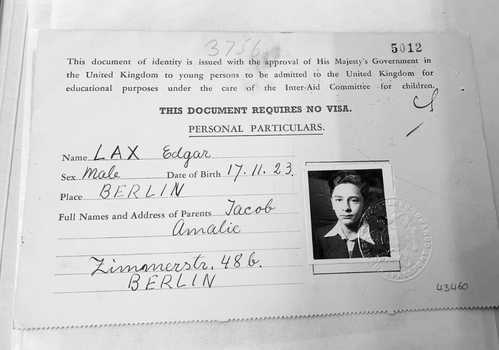 3756
5012
This document of identity is issued with the approval of His Majesty's Government in
the United Kingdom to young persons to be admitted to the United Kingdom for
educational purposes under the care of the Inter-Aid Committee for children.
THIS DOCUMENT REQUIRES NO VISA.
PERSONAL PARTICULARS.
Name LAX Edgar
Sex Male Date of Birth 17.11.23.
Place BERLIN
Full Names and Address of Parents Jacob
Amalie
Zimmerstr. 48b.
BERLIN
43460